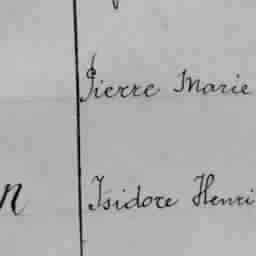 Pierre Marie
n Isidore Henri